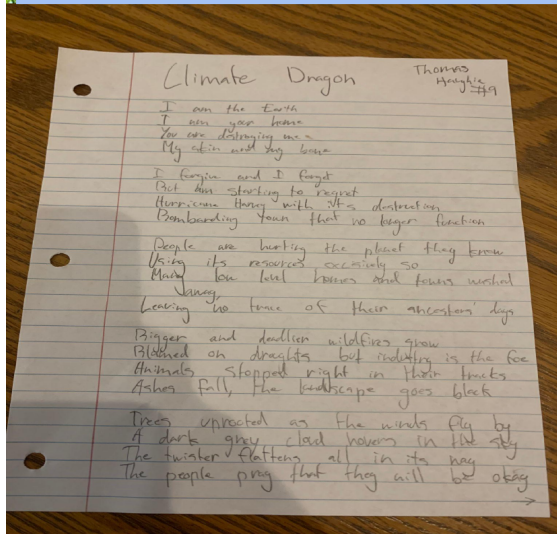 Climate Dragon
Thomas
#9
I am the Earth
I am your home
You are destroying me
My skin and my bone
I forgive and I forget
But am starting to regret
Hurricane Harvy with it's destruction
Bombarding town that no longer function
People are hurting the planet they know
Using its resources so
Many low level homes and towns washed
away,
Leaving no trace of their ancestors' days
Bigger and deadlier wildfires grow
Blamed on draghts but industry is the foe
Animals stopped right in their tracks
Ashes fall, the landscape goes black
Trees uprooted as the winds fly by
A dark grey cloud hovers in the sky
The twister flattens all in its way
The people pray that they will be okay